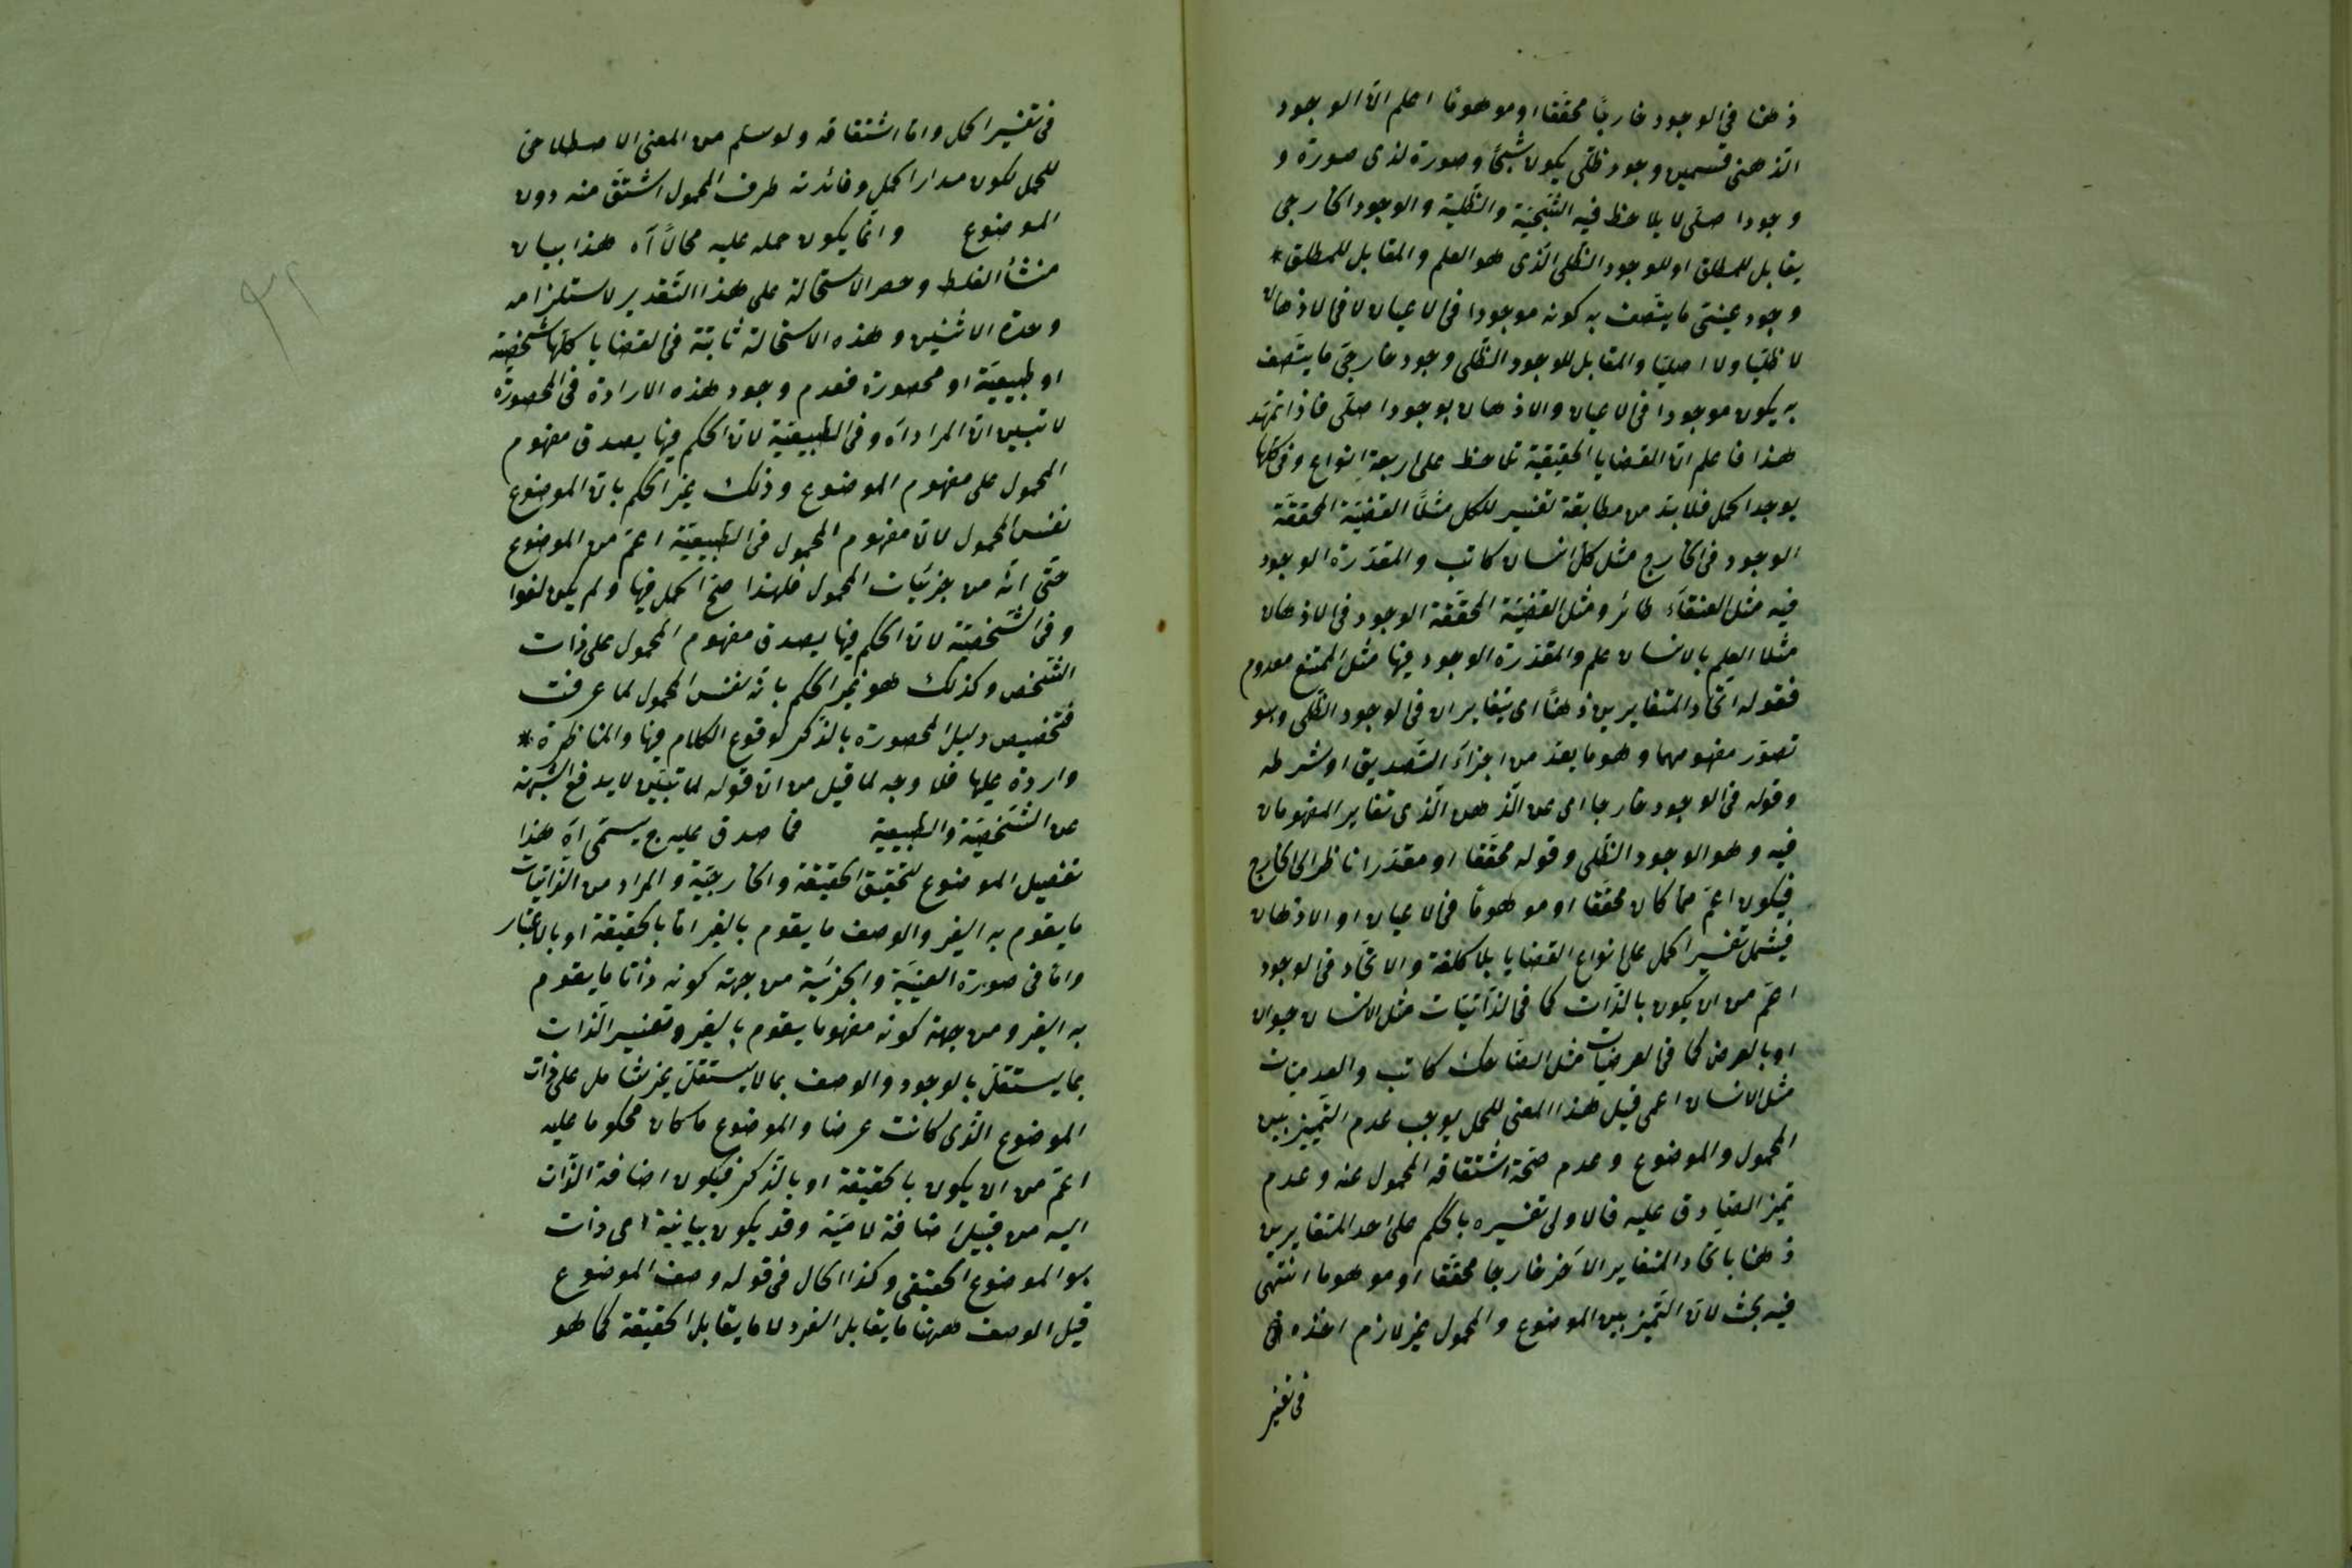 ذهنا فى الوجود خارجًا محققا او موهومًا اعلم انّ الوجود
الذهنى قسمين وجود ظلّى يكون شبحًا وصورة لذى صورة و
وجود اصلى لا يلاحظ فيه الشبحيّة والظلّية والوجود الخارجى
يقابل للمطلق او للوجود الظلّى الّذى هو العلم والمقابل للمطلق *
وجود عينىّ ما يتّصف به كونه موجودا فى الاعيان لا فى الاذهان
لا ظلّيا ولا اصليّا والمقابل للوجود الظّلى وجود خارجىّ ما يتّصف
به يكون موجودا فى الاعيان والاذهان بوجود اصلّى فاذا تمهّد
هذا فاعلم انّ القضايا الحقيقية تلاحظ على اربعة انواع وفى كلّها
يوجد الحمل فلا بدّ من مطابقة تفسير للكل مثلًا القضيّة المحققة
الوجود فى الخارج مثل كلّ انسان كاتب والمقدّرة الوجود
فيه مثل العنقاء طائر ومثل القضيّة المحقّقة الوجود فى الاذهان
مثلا العلم بالانسان علم والمقدّرة الوجود فيها مثل الممتنع معدوم
فقوله اتحاد المتغايرين ذهنًا اى يتغايران فى الوجود الظّلى وهو
تصوّر مفهومهما وهو ما يعدّ من اجزاء التّصديق او شرطه
وقوله فى الوجود خارجا اى عن الذّهن الّذى تغاير المفهومان
فيه وهو الوجود الظّلى وقوله محقّقا او مقدّرا ناظر الى الخارج
فيكون اعمّ ممّا كان محقّقا او موهومًا فى الاعيان او الاذهان
فيشمل تفسير الحمل على انواع القضايا بلا كلفة والاتّحاد فى الوجود
اعمّ من ان يكون بالذّات كما فى الذّاتيّات مثل الانسان حيوان
او بالعرض كما فى العرضيات مثل الضّاحك كاتب والعدميّات
مثل الانسان اعمى قيل هذا المعنى للحمل يوجب عدم التّمييز بين
المحمول والموضوع وعدم صحّة اشتقاقه المحمول عنه وعدم
تميز الصّادق عليه فالاولى تفسيره بالحكم على احد المتغايرين
ذهنا باتحاد المتغاير الآخر خارجا محقّقا او موهوما انتهى
فيه بحث لانّ التّميز بين الموضوع والمحمول غير لازم اخذه
فى تفسير
فى تفسير الحمل وامّا اشتقاقه ولو سلم من المعنى الاصطلاحىّ
للحمل لكون مدار الحمل وفائدته طرف المحمول اشتقّ منه دون
الموضوع وانّما يكون حمله عليه محالًا آه هذا بيان
منشأ الغلط وحصر الاستحالة على هذا التّقدير لاستلزامه
وحدة الاثنين وهذه الاستحالة ثابتة فى القضايا كلّها شخصيّة
او طبيعيّة او محصورة فعدم وجود هذه الارادة فى المحصورة
لا تبين انّ المراد آه وفى الطبيعيّة لانّ الحكم فيها يصدق مفهوم
المحمول على مفهوم الموضوع وذلك غير الحكم بانّ الموضوع
نفس المحمول لانّ مفهوم المحمول فى الطّبيعيّة اعمّ من الموضوع
حتّى انّه من جزئيّات المحمول فلهذا صحّ الحمل فيها ولم يكن لغوا
وفى الشّخصيّة لانّ الحكم فيها يصدق مفهوم المحمول على ذات
الشّخص وكذلك هو غير الحكم بانّه نفس المحمول لما عرفت
فتخصيص دليل المحصورة بالذّكر لوقوع الكلام فيها والمناظرة *
واردة عليها فلا وجه لما قيل من انّ قوله لما تبيّن لا يدفع الشّبهة
عن الشّخصيّة والطّبيعية فما صدق عليه ج يسمّى آه هذا
تفصيل الموضوع لتحقيق الحقيقة والخارجيّة والمراد من الذاتيّات
ما يقوم به الغير والوصف ما يقوم بالغير امّا بالحقيقة او بالاعتبار
وامّا فى صورة العينيّة والجزئيّة من جهة كونه ذاتا ما يقوم
به الغير ومن جهة كونه مفهوما يقوم بالغير وتفسير الذّات
بما يستقلّ بالوجود والوصف بما لا يستقلّ غير شامل على ذات
الموضوع الّذى كانت عرضا والموضوع ما كان محكوما عليه
اعمّ من ان يكون بالحقيقة او بالذّكر فيكون اضافة الذّات
اليه من قبيل اضافة لاميّة وقد يكون بيانية اى ذات
هو الموضوع الحقيقى وكذا الحال فى قوله وصف الموضوع
قيل الوصف ههنا ما يقابل الفرد لا ما يقابل الحقيقة كما هو